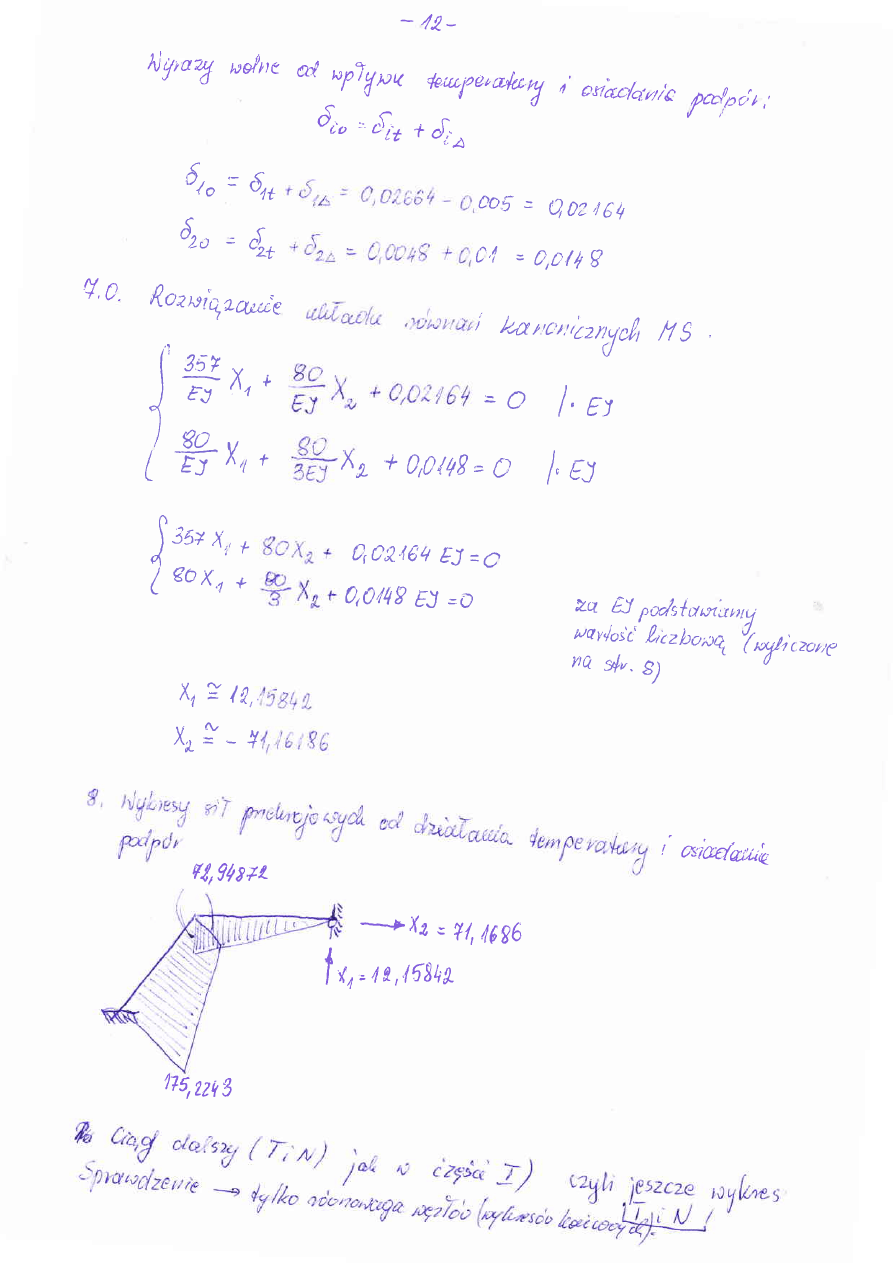 - 12 -
Wyrazy wolne od wpływu temperatury i osiadania podpór:
δio = δit + δiΔ
δ10 = δ1t + δ1Δ = 0,02664 - 0,005 = 0,02164
δ20 = δ2t + δ2Δ = 0,0048 + 0,01 = 0,0148
7.0. Rozwiązanie układu równań kanonicznych MS.
357/EJ X1 + 80/EJ X2 + 0,02164 = 0 /· EJ
80/EJ X1 + 80/3EJ X2 + 0,0148 = 0 /· EJ
357 X1 + 80X2 + 0,02164 EJ = 0
80X1 + 80/3 X2 + 0,0148 EJ = 0
za EJ podstawiamy
wartość liczbową (wyliczone
na str. 8)
X1 ≅ 12,15842
X2 ≅ - 71,16186
8. Wykresy sił przekrojowych od działania temperatury i osiadania
podpór
72,94872
X2 = 71,1686
X1 = 12,15842
175,2243
Ciąg dalszy (T i N) jak w części I) czyli jeszcze wykres
T i N !
Sprawdzenie → tylko równowaga węzłów (wykresów końcowych).